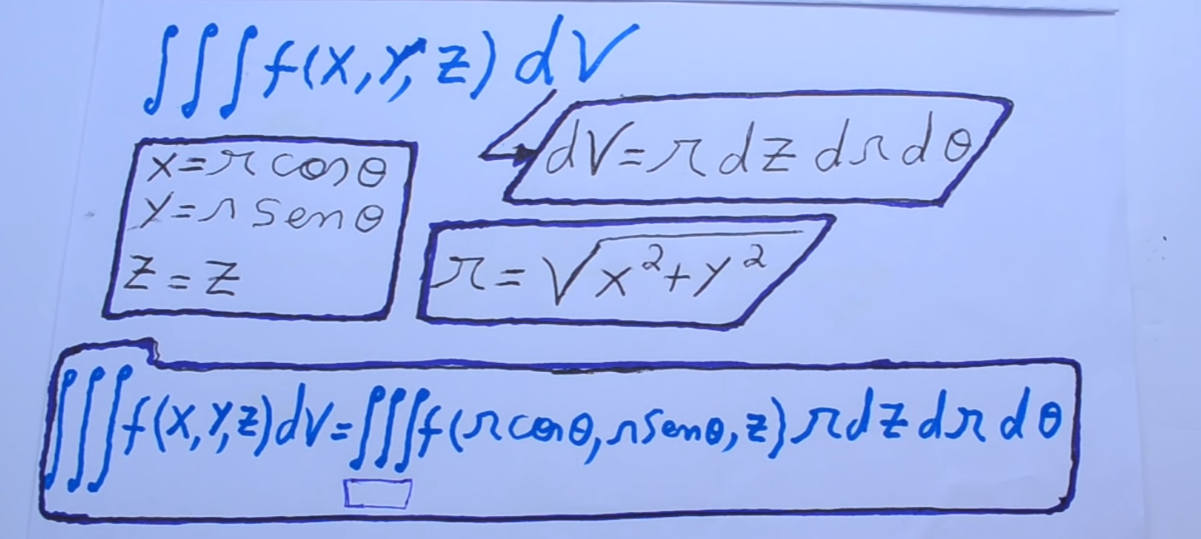 ∭f(x,y,z) dV
dV=r dz dr dθ
x=r cosθ
y=r senθ
z=z
r=√x²+y²
∭f(x,y,z)dV=∭f(r cosθ,r senθ,z) r dz dr dθ